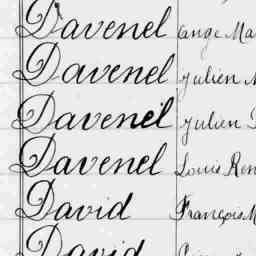 Davenel ange Ma
Davenel Julien M
Davenel Julien
Davenel Louis Ren
David François M
David